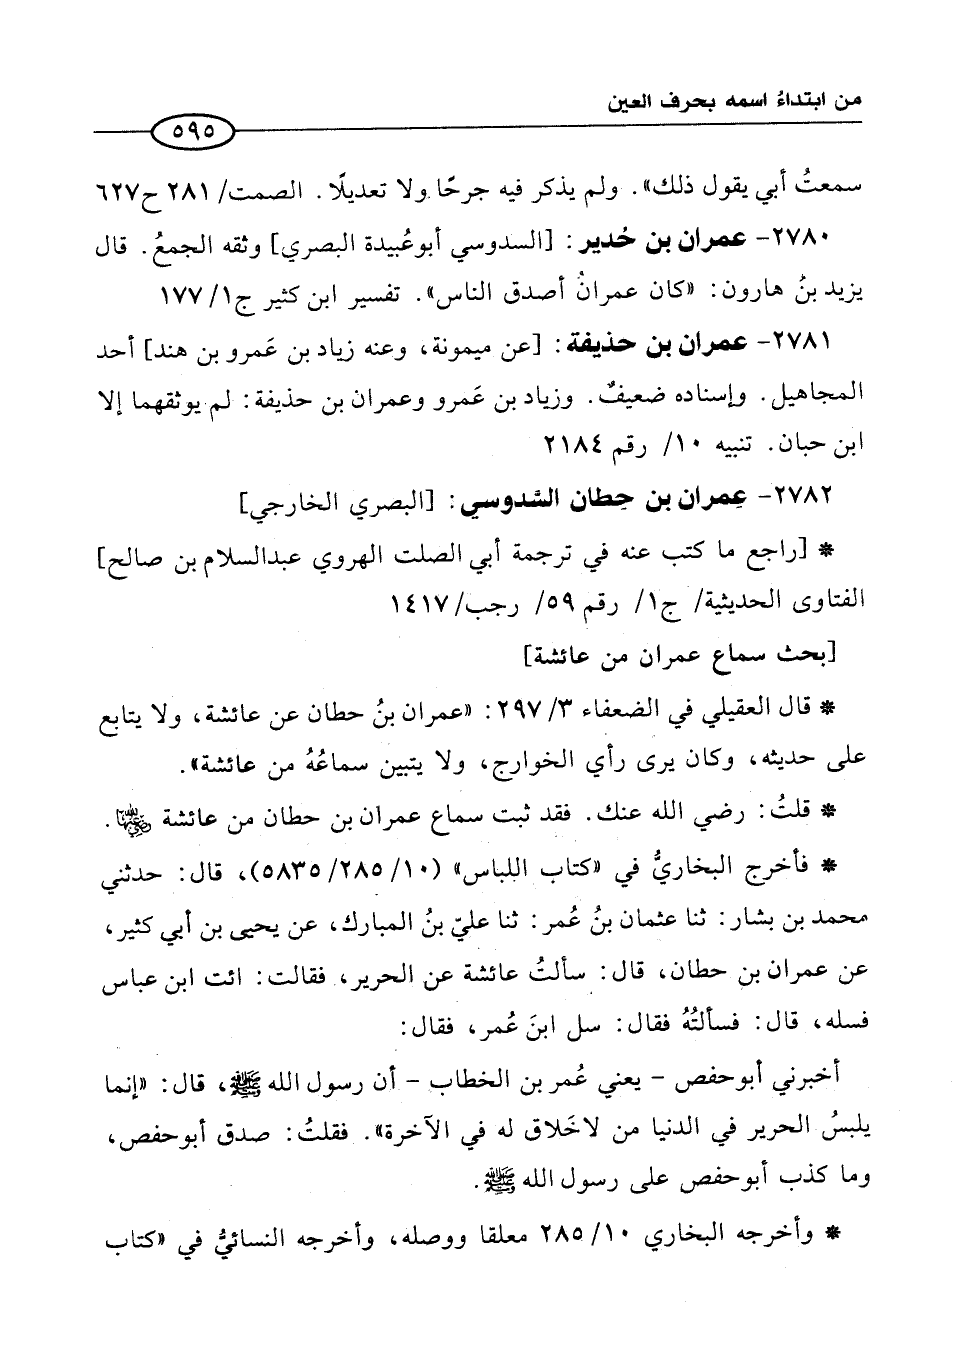 من ابتداءُ اسمه بحرف العين
٥٩٥
سمعتُ أبي يقول ذلك». ولم يذكر فيه جرحًا ولا تعديلًا. الصمت/ ٢٨١ ح٦٢٧
٢٧٨٠- عمران بن حُدير: [السدوسي أبوعُبيدة البصري] وثقه الجمعُ. قال
يزيد بنُ هارون: «كان عمرانُ أصدق الناس». تفسير ابن كثير ج١/ ١٧٧
٢٧٨١- عمران بن حذيفة: [عن ميمونة، وعنه زياد بن عَمرو بن هند] أحد
المجاهيل. وإسناده ضعيفٌ. وزياد بن عَمرو وعمران بن حذيفة: لم يوثقهما إلا
ابن حبان. تنبيه ١٠/ رقم ٢١٨٤
٢٧٨٢- عِمران بن حِطان السَّدوسي: [البصري الخارجي]
* [راجع ما كتب عنه في ترجمة أبي الصلت الهروي عبدالسلام بن صالح]
الفتاوى الحديثية/ ج١/ رقم ٥٩/ رجب/ ١٤١٧
[بحث سماع عمران من عائشة]
* قال العقيلي في الضعفاء ٣/ ٢٩٧: «عمران بنُ حطان عن عائشة، ولا يتابع
على حديثه، وكان يرى رأي الخوارج، ولا يتبين سماعُهُ من عائشة».
* قلتُ: رضي الله عنك. فقد ثبت سماع عمران بن حطان من عائشة رضي الله عنها.
* فأخرج البخاريُّ في «كتاب اللباس» (١٠/ ٢٨٥/ ٥٨٣٥)، قال: حدثني
محمد بن بشار: ثنا عثمان بنُ عُمر: ثنا عليّ بنُ المبارك، عن يحيى بن أبي كثير،
عن عمران بن حطان، قال: سألتُ عائشة عن الحرير، فقالت: ائت ابن عباس
فسله، قال: فسألتُهُ فقال: سل ابنَ عُمر، فقال:
أخبرني أبوحفص - يعني عُمر بن الخطاب - أن رسول الله ﷺ، قال: «إنما
يلبسُ الحرير في الدنيا من لاخَلاق له في الآخرة». فقلتُ: صدق أبوحفص،
وما كذب أبوحفص على رسول الله ﷺ.
* وأخرجه البخاري ١٠/ ٢٨٥ معلقا ووصله، وأخرجه النسائيُّ في «كتاب